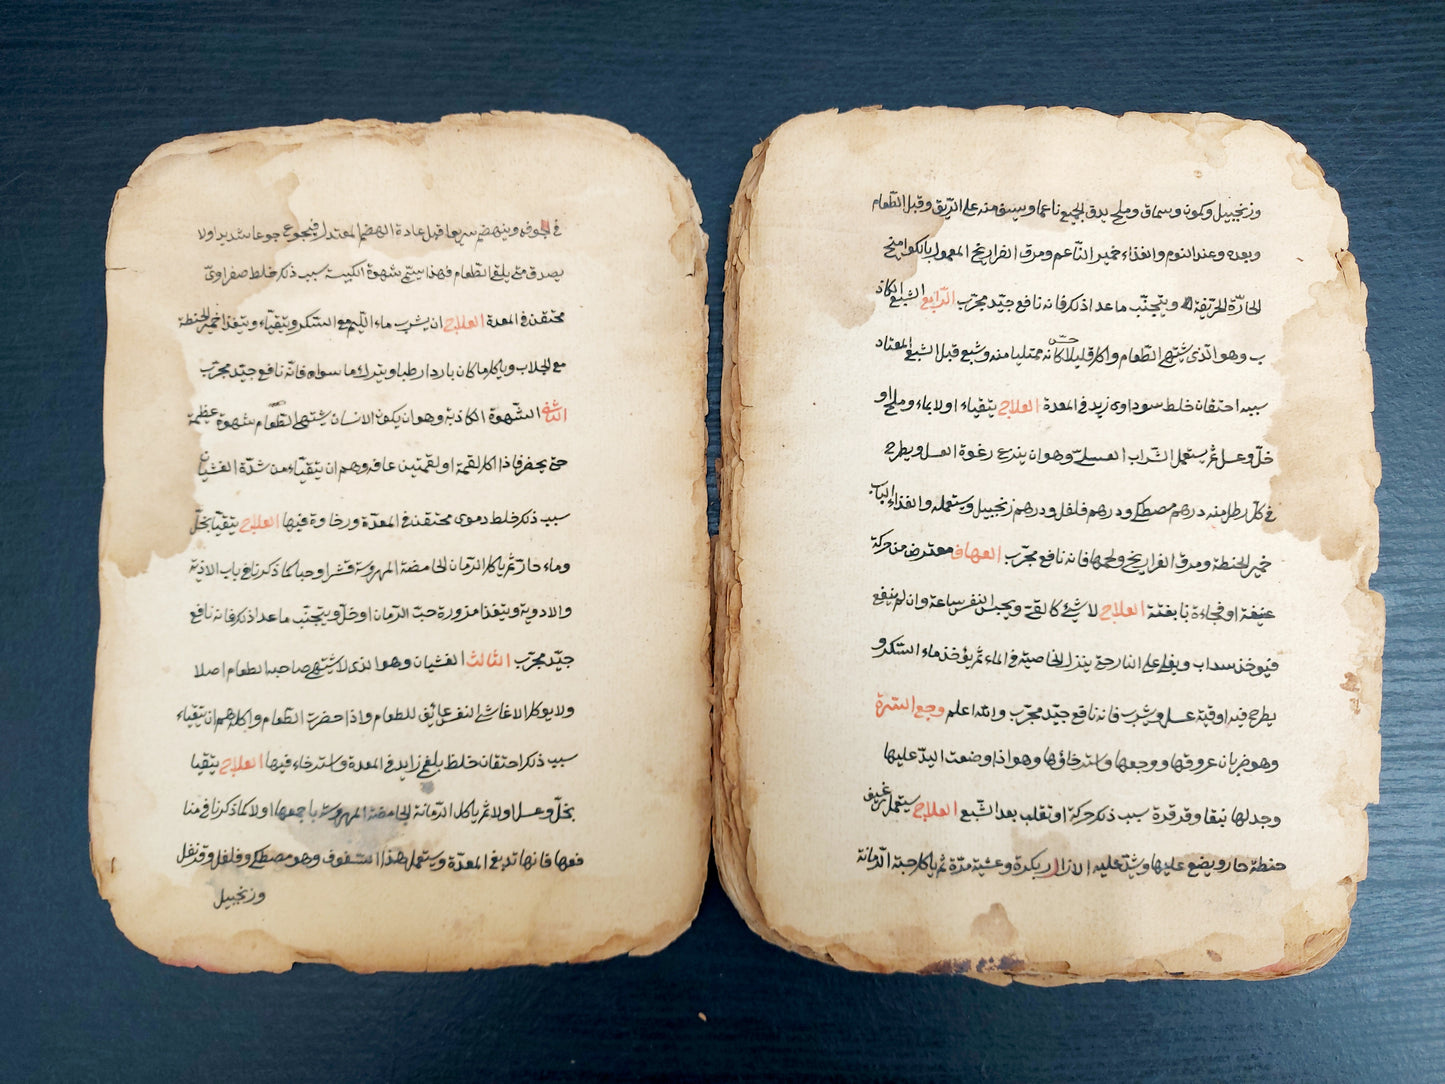 في جوفه وينهضم سريعا قبل عادة الهضم المعتدل فيجوع جوعا شديدا ولا
يصدق متى يلقى الطعام فهذا يسمى شهوة الكلبية سبب ذلك خلط صفراوى
محتقن في المعدة العلاج ان يشرب ماء الليم مع السكر ويتقياء ويتغذا خمير الحنطة
مع الجلاب وياكل ما كان باردا رطبا ويترك ما سواه فانه نافع جيد مجرب
الثاني الشهوة الكاذبة وهو ان يكون الانسان يشتهى الطعام شهوة عظيمة
حتى يحضر فاذا اكل لقمة او لقمتين عافه وهم ان يتقياء من شدة الغشيان
سبب ذلك خلط دموى محتقن في المعدة ورخاوة فيها العلاج يتقيا بخل
وماء حار ثم ياكل الرمان الحامضة المهروسة قشرا وحبا كما ذكر نافع باب الاذية
والادوية ويتغذا مزورة حب الرمان او خل ويتجنب ما عدا ذلك فانه نافع
جيد مجرب الثالث الغشيان وهو الذى لا يشتهى صاحبه الطعام اصلا
ولا يوكل الا غاشي النفس عائق للطعام واذا حضرت الطعام واكله هم ان يتقياء
سبب ذلك احتقان خلط بلغم زايد في المعدة واسترخاء فيها العلاج يتقيا
بخل وعسل اولا ثم ياكل الرمانة الحامضة المهروسة باجمعها اولا كما ذكرنا في منا
فعها فانها تدبغ المعدة ويستعمل هذا السفوف وهو مصطكى وفلفل وقرنفل
وزنجبيل
وزنجبيل وكمون وسماق وملح يدق الجميع ناعما ويسف منه على الريق وقبل الطعام
وبعده وعند النوم والغذاء خمير الناعم ومرق الفراريخ المعمول بالكوامخ
الحارة الحريفة ويتجنب ما عدا ذلك فانه نافع جيد مجرب الرابع الشبع الكاذ
ب وهو الذى يشتهى الطعام واكل قليلا حس كانه ممتليا منه وشبع قبل الشبع المعتاد
سببه احتقان خلط سوداوى زيد في المعدة العلاج يتقياء اولا بماء وملح او
خل وعسل ثم يستعمل الشراب العسلي وهو ان ينزع رغوة العسل ويطرح
في كل رطل منه درهم مصطكى ودرهم فلفل ودرهم زنجبيل ويستعمله والغذاء لباب
خمير الحنطة ومرق الفراريخ ولحمها فانه نافع مجرب الفهاق معترض من حركة
عنيفة او فجاءة نابغتة العلاج لا شئ كالقئ ويحبس النفس ساعة وان لم ينفع
فيوخذ سداب ويغلى على النار حتى ينزل الخاصية في الماء ثم يؤخذ ماء السكر و
يطرح فيه اوقية عسل ويشرب فانه نافع جيد مجرب والله اعلم وجع السرة
وهو ضربان عروقها ووجعها واسترخاؤها وهو اذا وضعت اليد عليها
وجد لها نبقا وقرقرة سبب ذلك حركة او تقلب بعد الشبع العلاج يستعمل رغيف
حنطة حار ويضع عليها ويشد عليه الازار بكرة وعشية مدة ثم ياكل حبة الرمانة